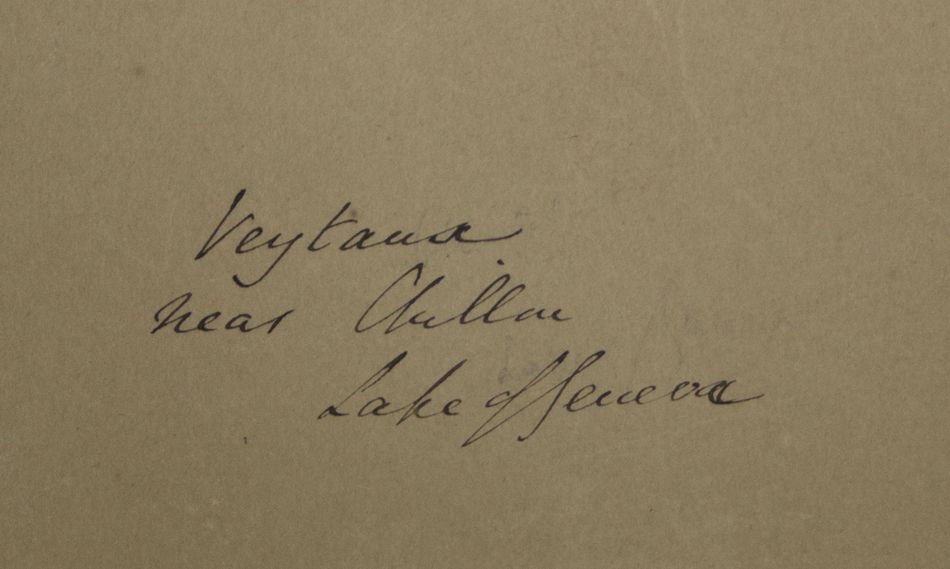 Veytaux
near Chillon
Lake of Geneva